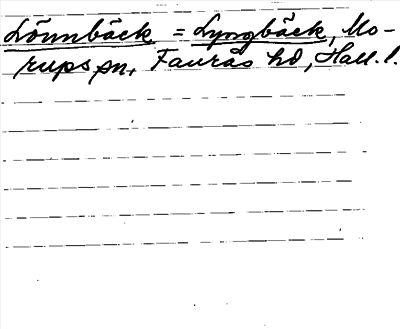 Lönnbäck = Lyngbäck, Mo-
rups sn, Faurås hd, Hall. l.